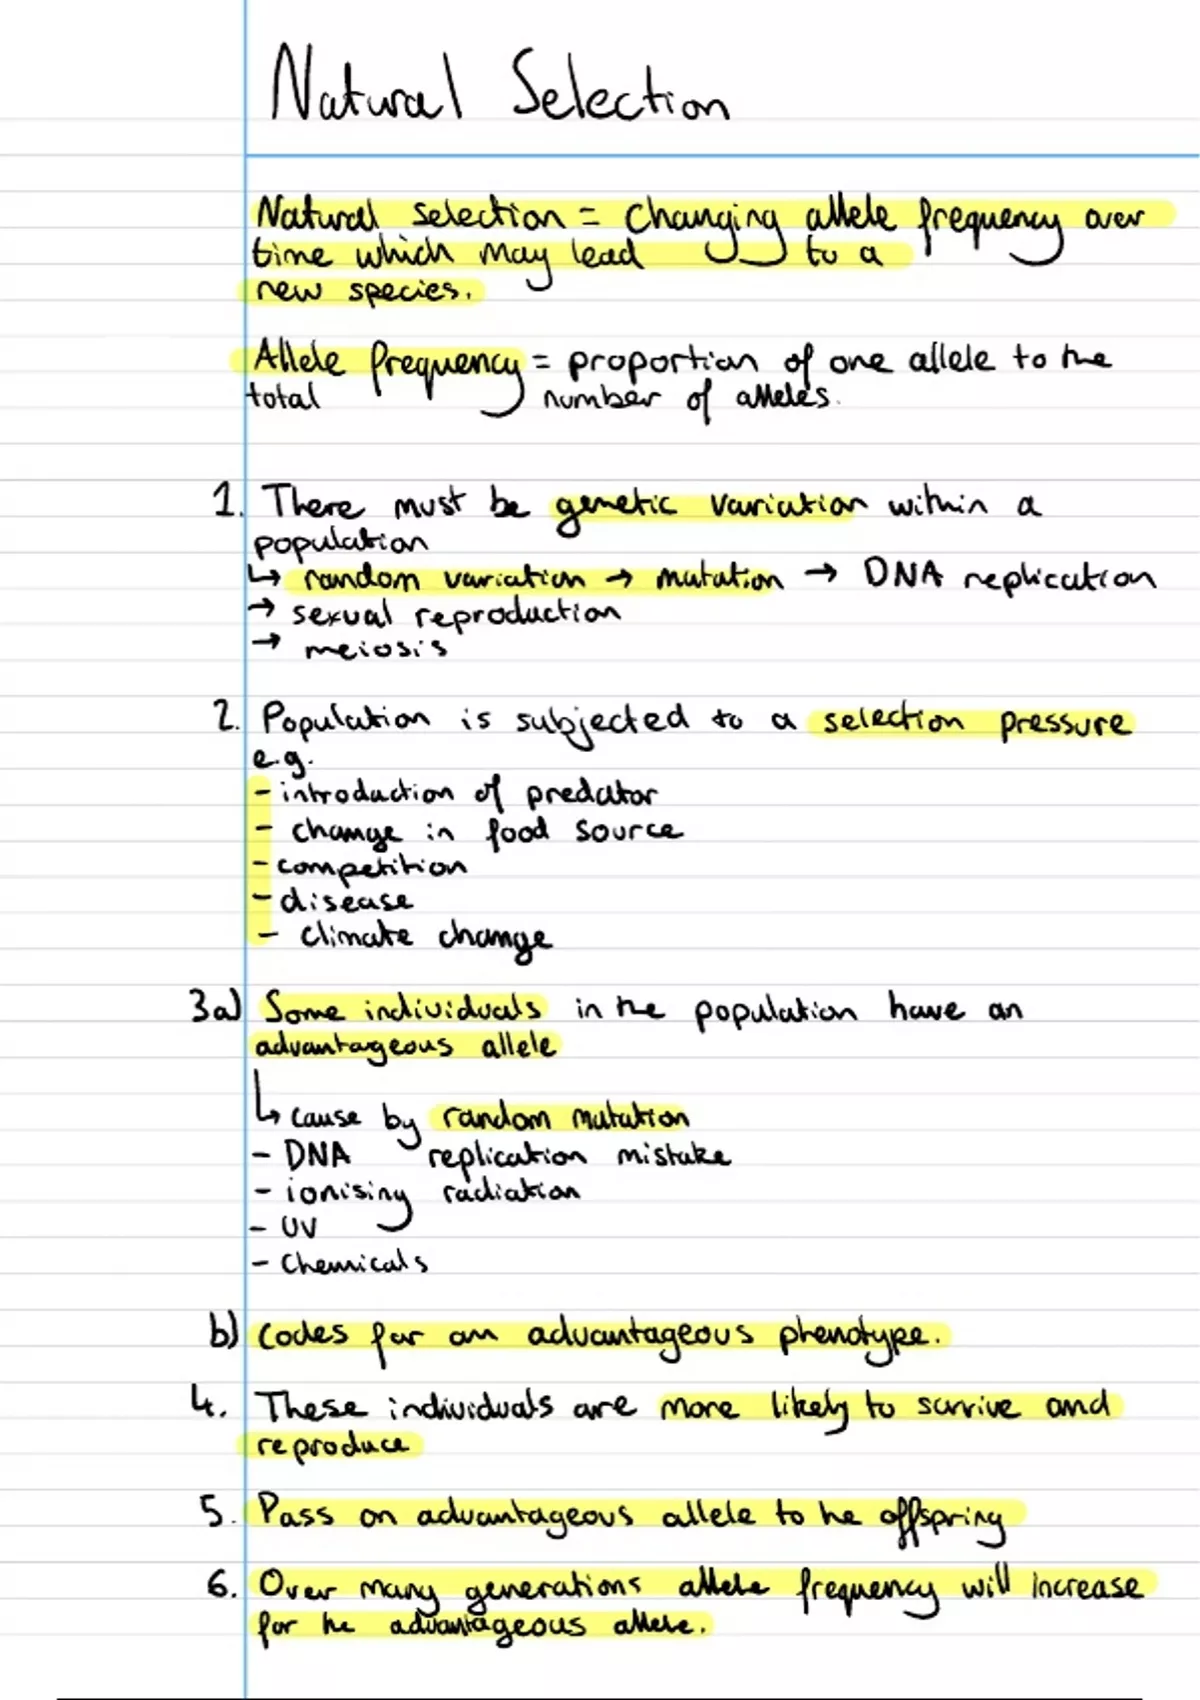 Natural Selection
Natural selection = Changing allele frequency over
time which may lead to a
new species.
Allele frequency = proportion of one allele to the
total number of alleles.
1. There must be genetic variation within a
population
↳ random variation → mutation → DNA replication
→ sexual reproduction
→ meiosis
2. Population is subjected to a selection pressure
e.g.
- introduction of predator
- change in food source
- competition
- disease
- climate change
3a) Some individuals in the population have an
advantageous allele
↳ cause by random mutation
- DNA replication mistake
- ionising radiation
- UV
- Chemicals
b) Codes for an advantageous phenotype.
4. These individuals are more likely to survive and
reproduce
5. Pass on advantageous allele to the offspring
6. Over many generations allele frequency will increase
for the advantageous allele.